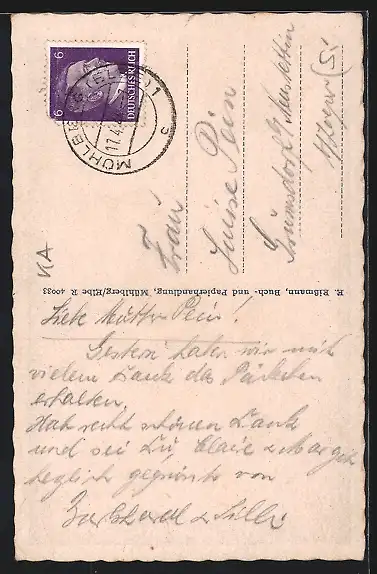 DEUTSCHES REICH
6
6
MÜHLBERG (ELBE) 1
17.4.
c
Frau
Luise Pein
Grünsdorf
KA
E. Rißmann, Buch- und Papierhandlung, Mühlberg/Elbe R 40033
Liebe Mutter Pein!
Gestern haben wir mit
vielem Dank das Päckchen
erhalten.
Hab recht schönen Dank
und sei Du, Claire u Margit
herzlich gegrüßt von